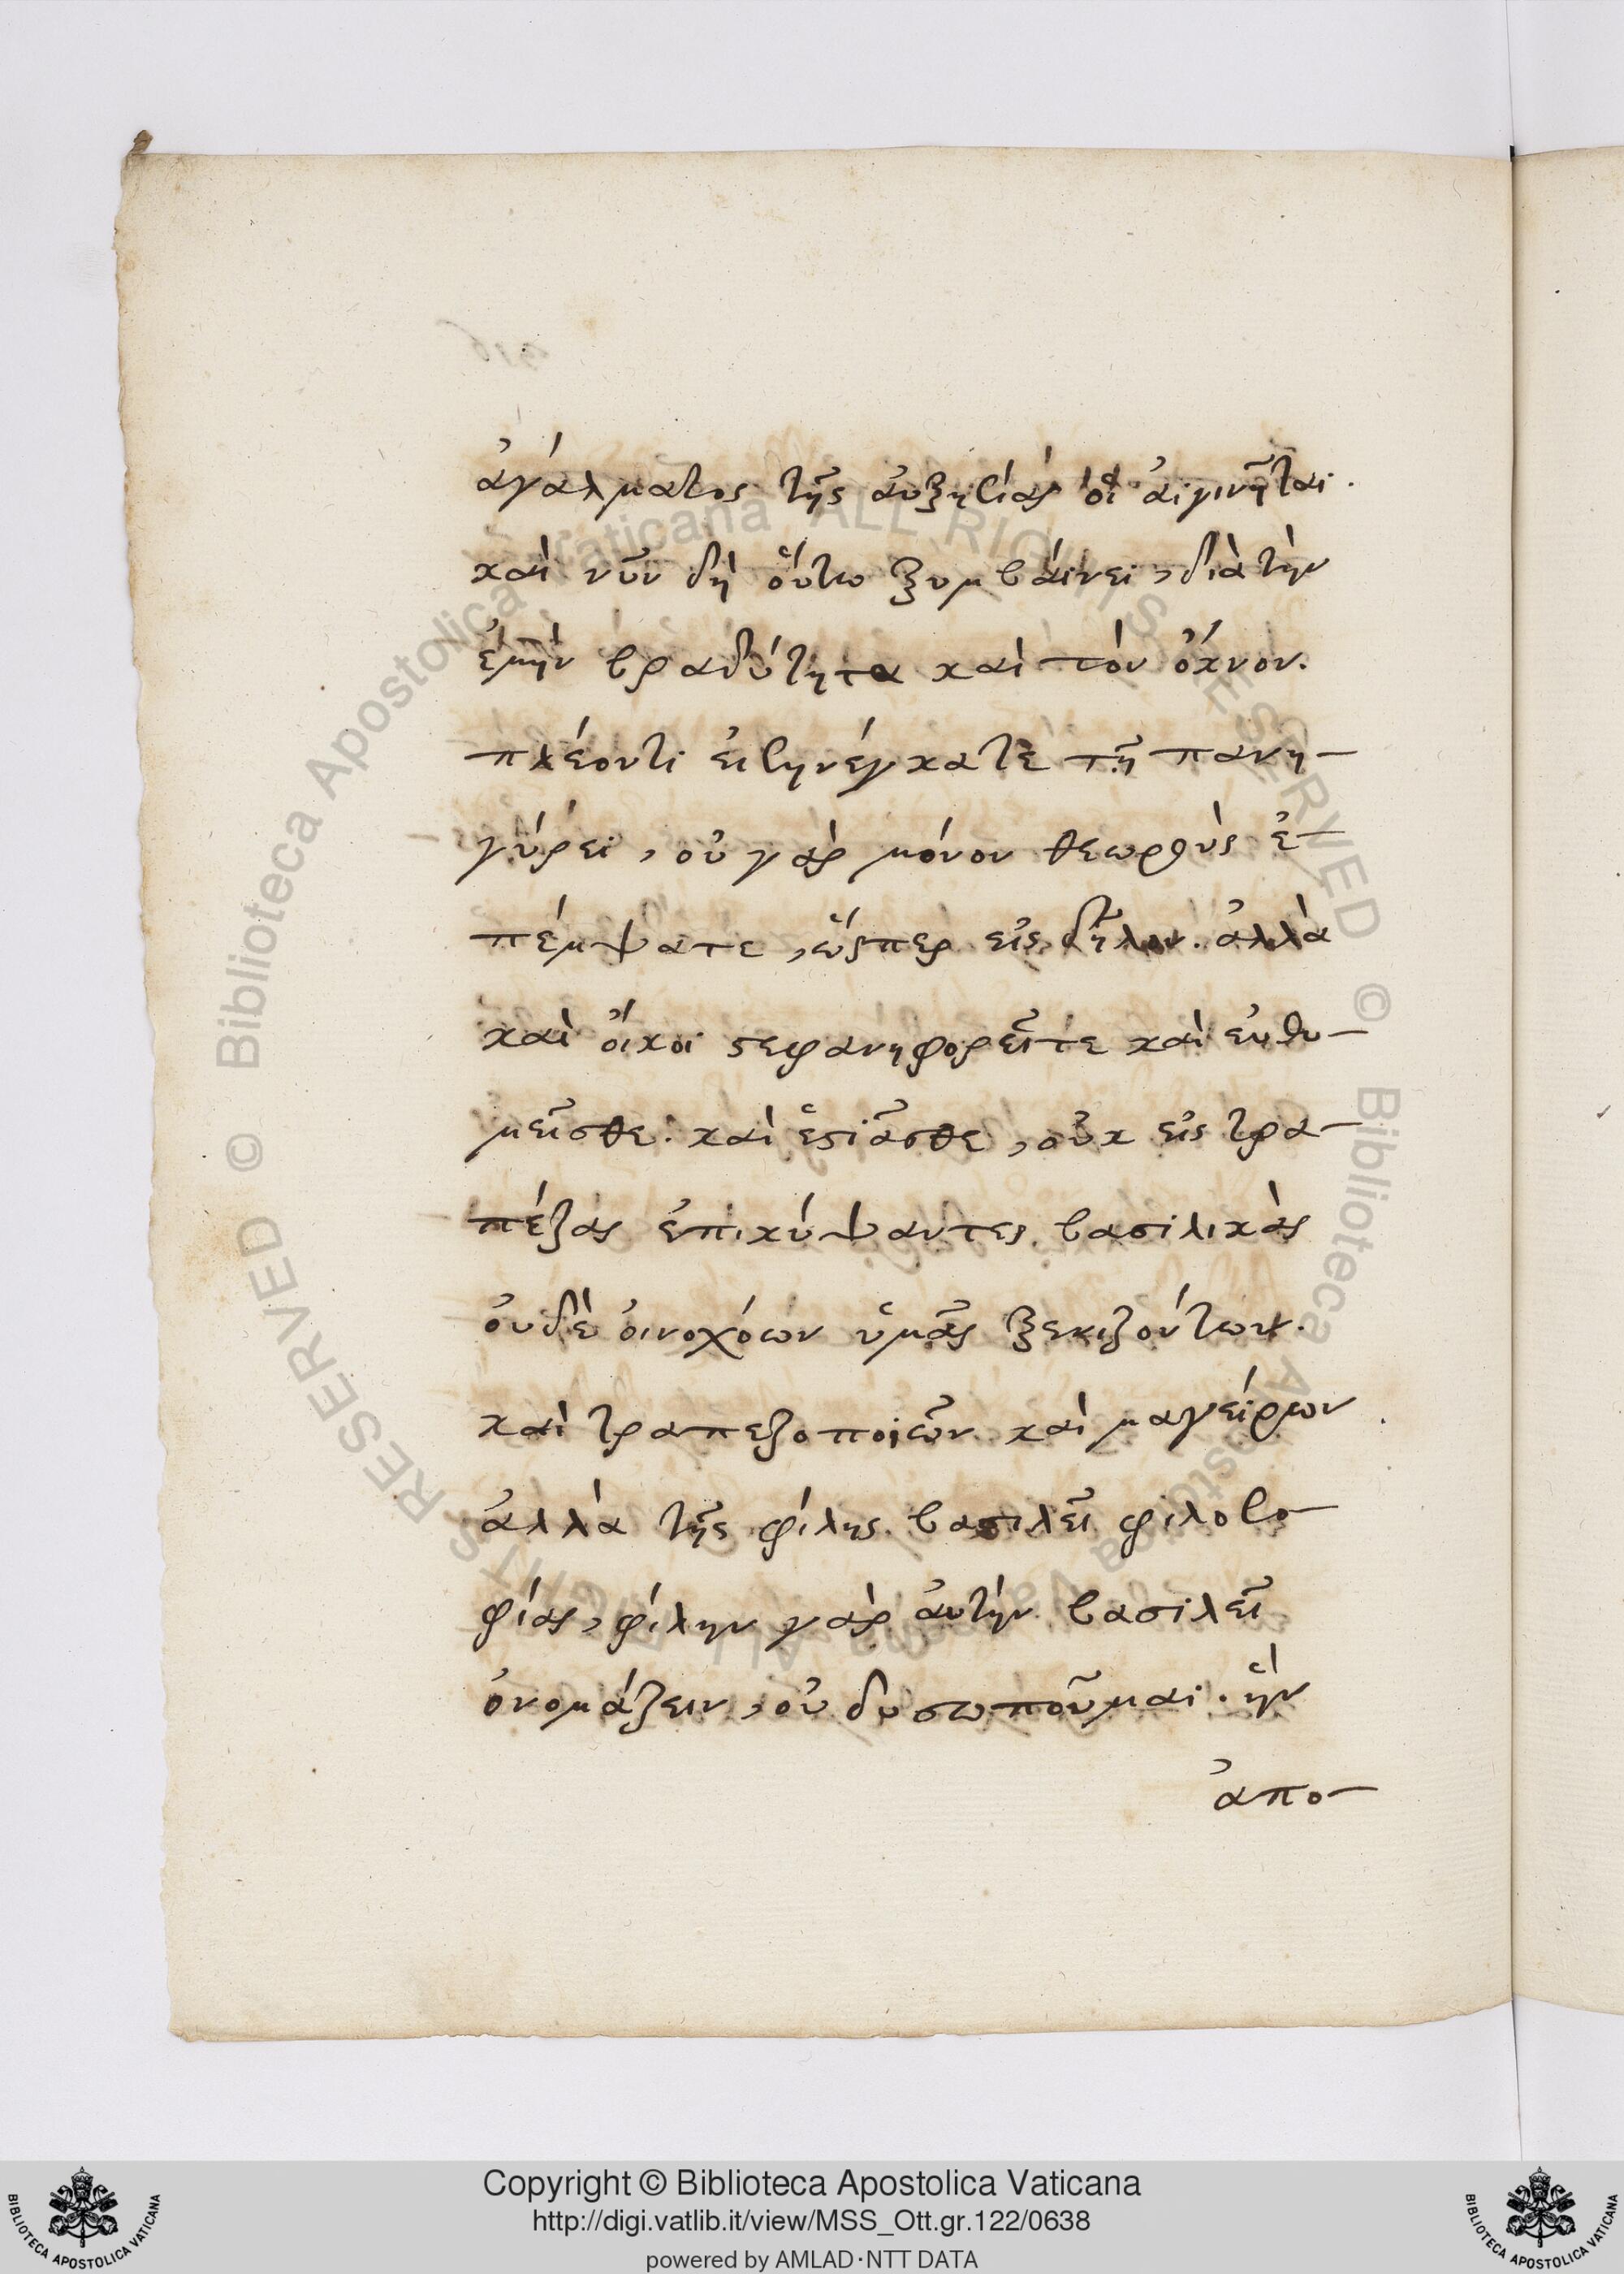 ἀγάλματος τῆς αὐξησίας οἱ αἰγινῆται.
καὶ νῦν δὴ οὕτω ξυμβαίνει, διὰ τὴν
ἐμὴν βραδύτητα καὶ τὸν ὄκνον.
πλέοντι εἰσηνέγκατε τῇ πανη-
γύρει, οὐ γὰρ μόνον θεωροὺς ἐ-
πέμψατε, ὥςπερ εἰς δῆλον. ἀλλὰ
καὶ οἴκοι στεφανηφορεῖτε καὶ εὐθυ-
μεῖσθε. καὶ ἑστιᾶσθε, οὐκ εἰς τρα-
πέζας ἐπικύψαντες βασιλικὰς
οὐδὲ οἰνοχόων ὑμᾶς ξενιζόντων.
καὶ τραπεζοποιῶν καὶ μαγείρων.
ἀλλὰ τῆς φίλης βασιλεῖ φιλοσο-
φίας, φίλην γὰρ αὐτὴν βασιλεῖ
ὀνομάζειν, οὐ δυσωποῦμαι. ἣν
ἀπο-
Copyright © Biblioteca Apostolica Vaticana
http://digi.vatlib.it/view/MSS_Ott.gr.122/0638
powered by AMLAD·NTT DATA
BIBLIOTECA APOSTOLICA VATICANA
BIBLIOTECA APOSTOLICA VATICANA
© Biblioteca Apostolica Vaticana ALL RIGHTS RESERVED
© Biblioteca Apostolica Vaticana ALL RIGHTS RESERVED